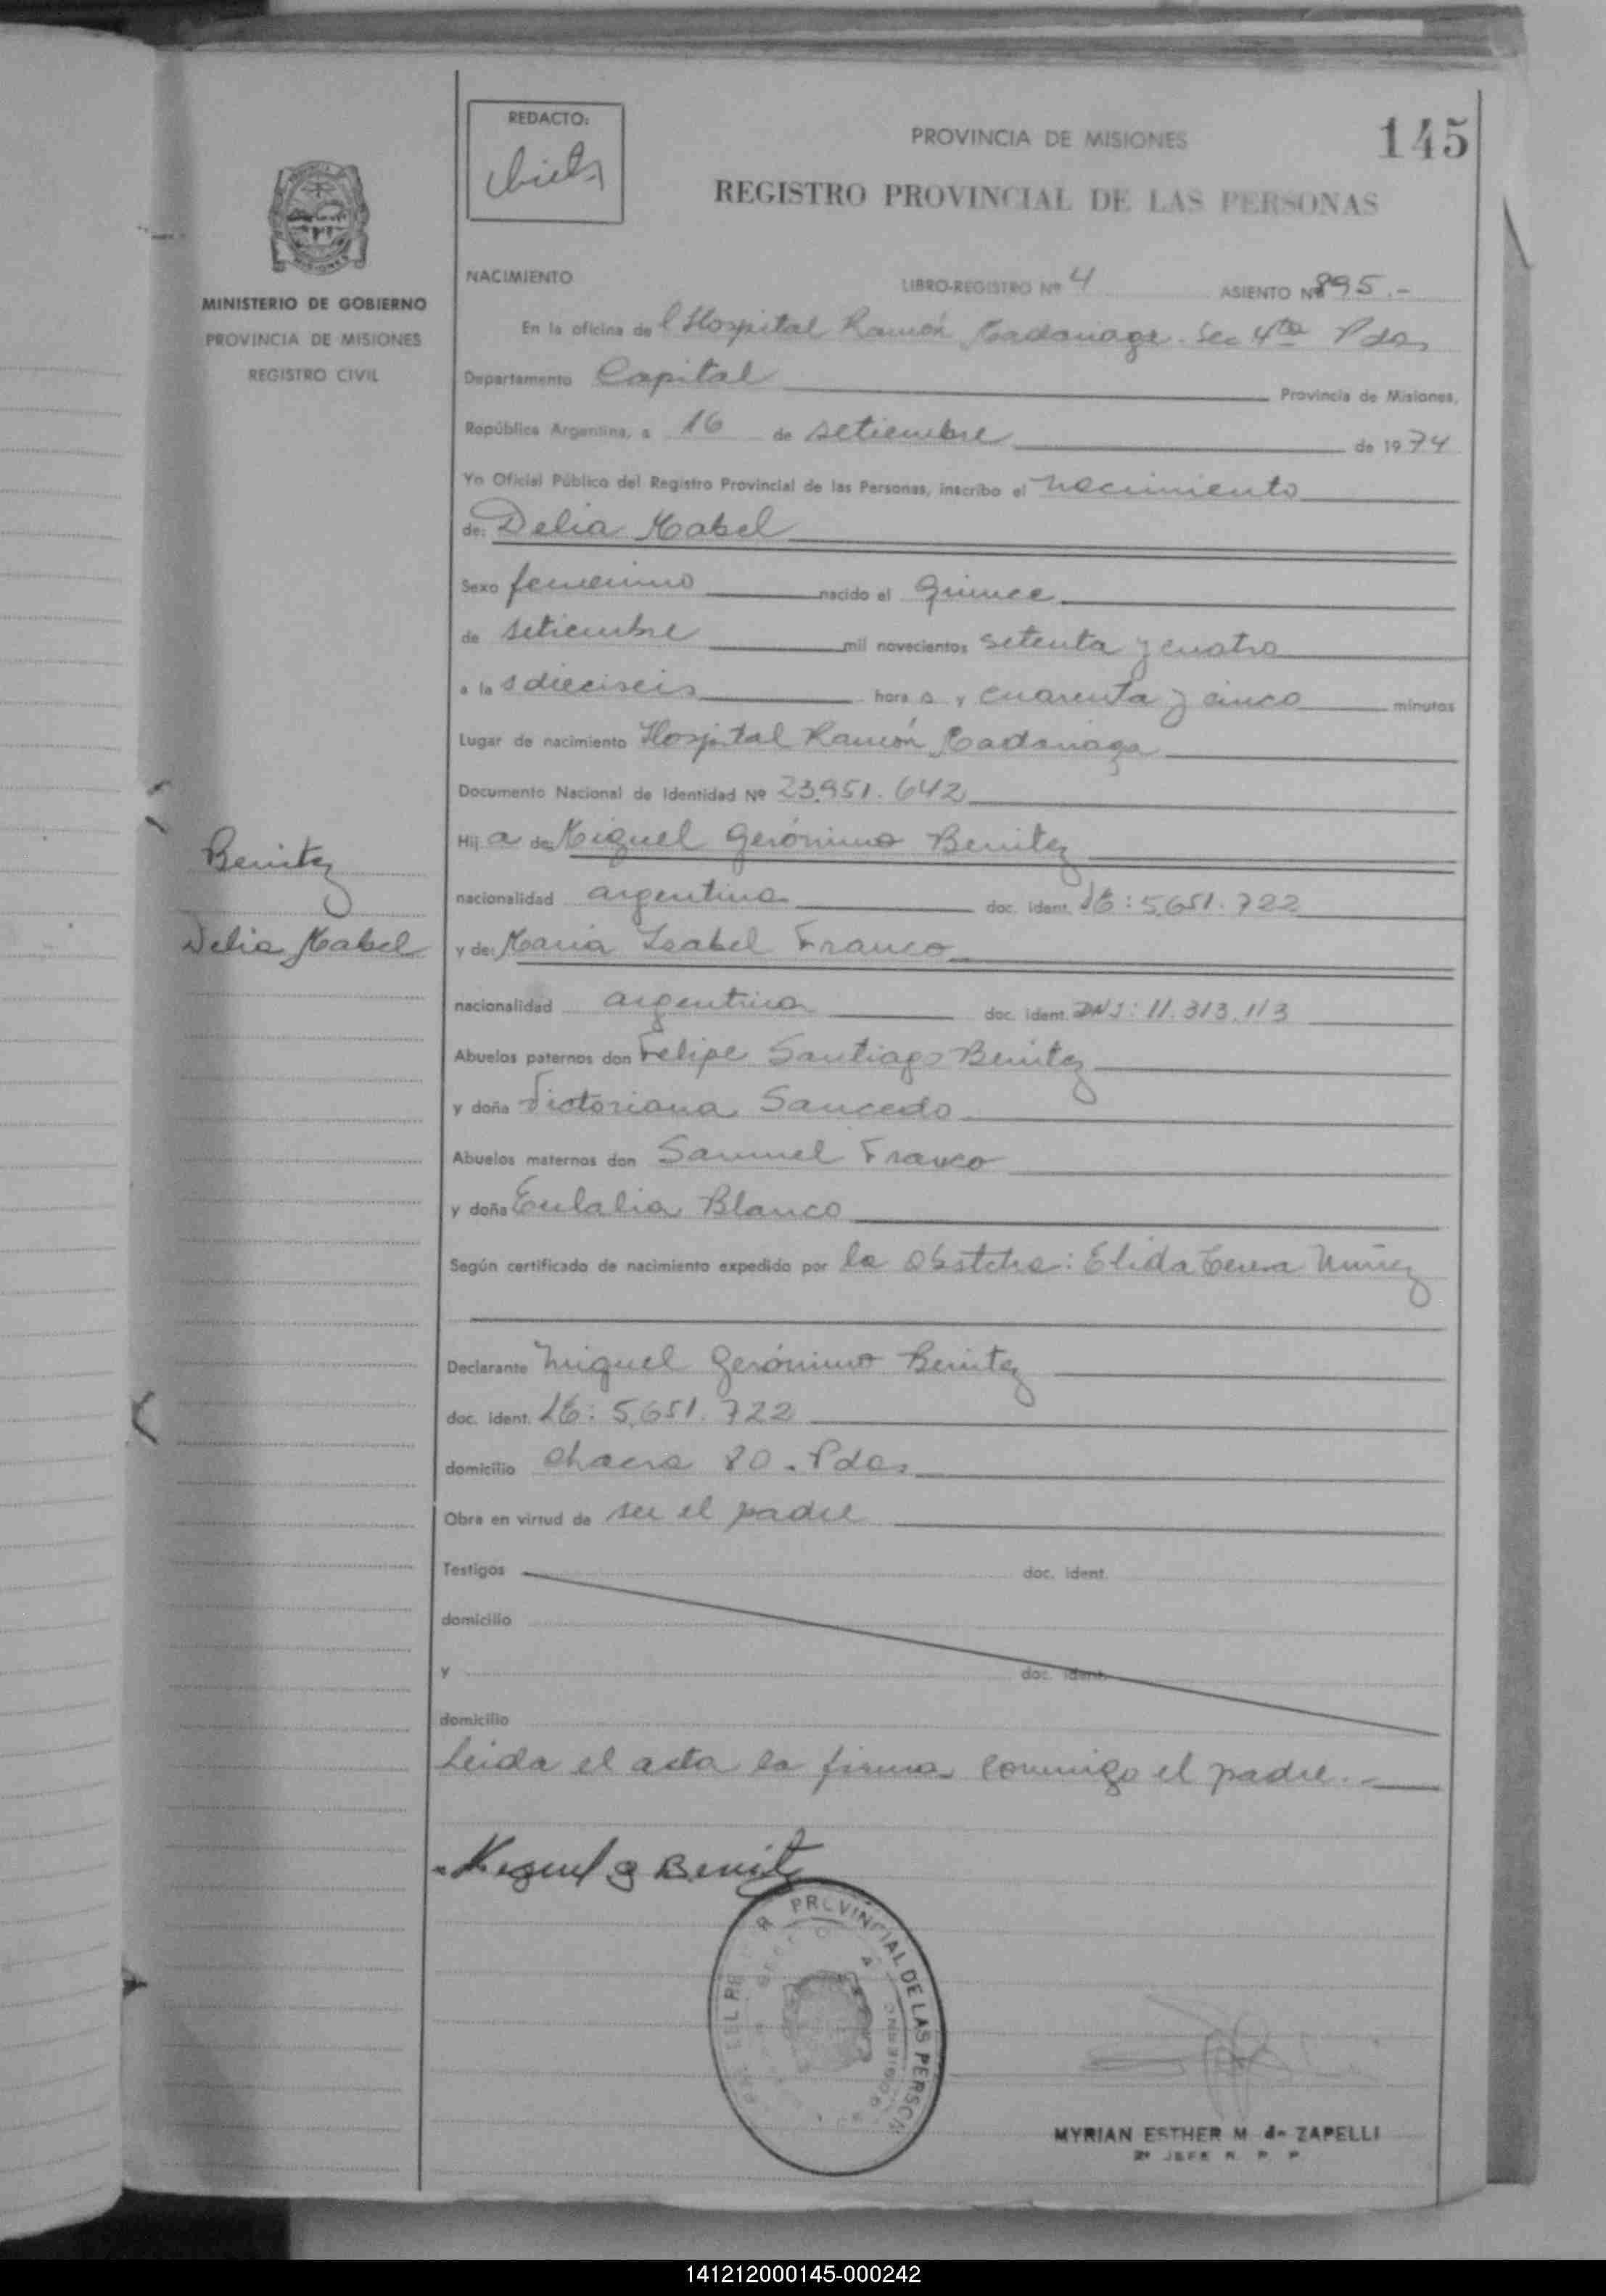 REDACTO:
PROVINCIA DE MISIONES
145
REGISTRO PROVINCIAL DE LAS PERSONAS
MINISTERIO DE GOBIERNO
PROVINCIA DE MISIONES
REGISTRO CIVIL
NACIMIENTO LIBRO-REGISTRO Nº 4 ASIENTO Nº 895.-
En la oficina del Hospital Ramón Madariaga. Sec 4ta Pdas
Departamento Capital Provincia de Misiones,
República Argentina, a 16 de setiembre de 1974
Yo Oficial Público del Registro Provincial de las Personas, inscribo el nacimiento
de: Delia Mabel
Sexo femenino nacido el quince
de setiembre mil novecientos setenta y cuatro
a las dieciseis horas y cuarenta y cinco minutos
Lugar de nacimiento Hospital Ramón Madariaga
Documento Nacional de Identidad Nº 23.951.642
Hija de: Miguel Gerónimo Benitez
nacionalidad argentina doc. ident. LE: 5.651.722
y de: Maria Isabel Franco
nacionalidad argentina doc. ident. DNI: 11.313.113
Benitez
Delia Mabel
Abuelos paternos don Felipe Santiago Benitez
y doña Victoriana Saucedo
Abuelos maternos don Samuel Franco
y doña Eulalia Blanco
Según certificado de nacimiento expedido por la Obstetra: Elida Teresa Nuñez
Declarante Miguel Gerónimo Benitez
doc. ident. LE: 5.651.722
domicilio Chacra 80 - Pdas
Obra en virtud de ser el padre
Testigos doc. ident.
domicilio
y doc. ident.
domicilio
Leida el acta la firma conmigo el padre.-
Miguel G Benitez
PROVINCIAL DE LAS PERSON
MYRIAN ESTHER M. de ZAPELLI
2º JEFE R. P. P.
141212000145-000242